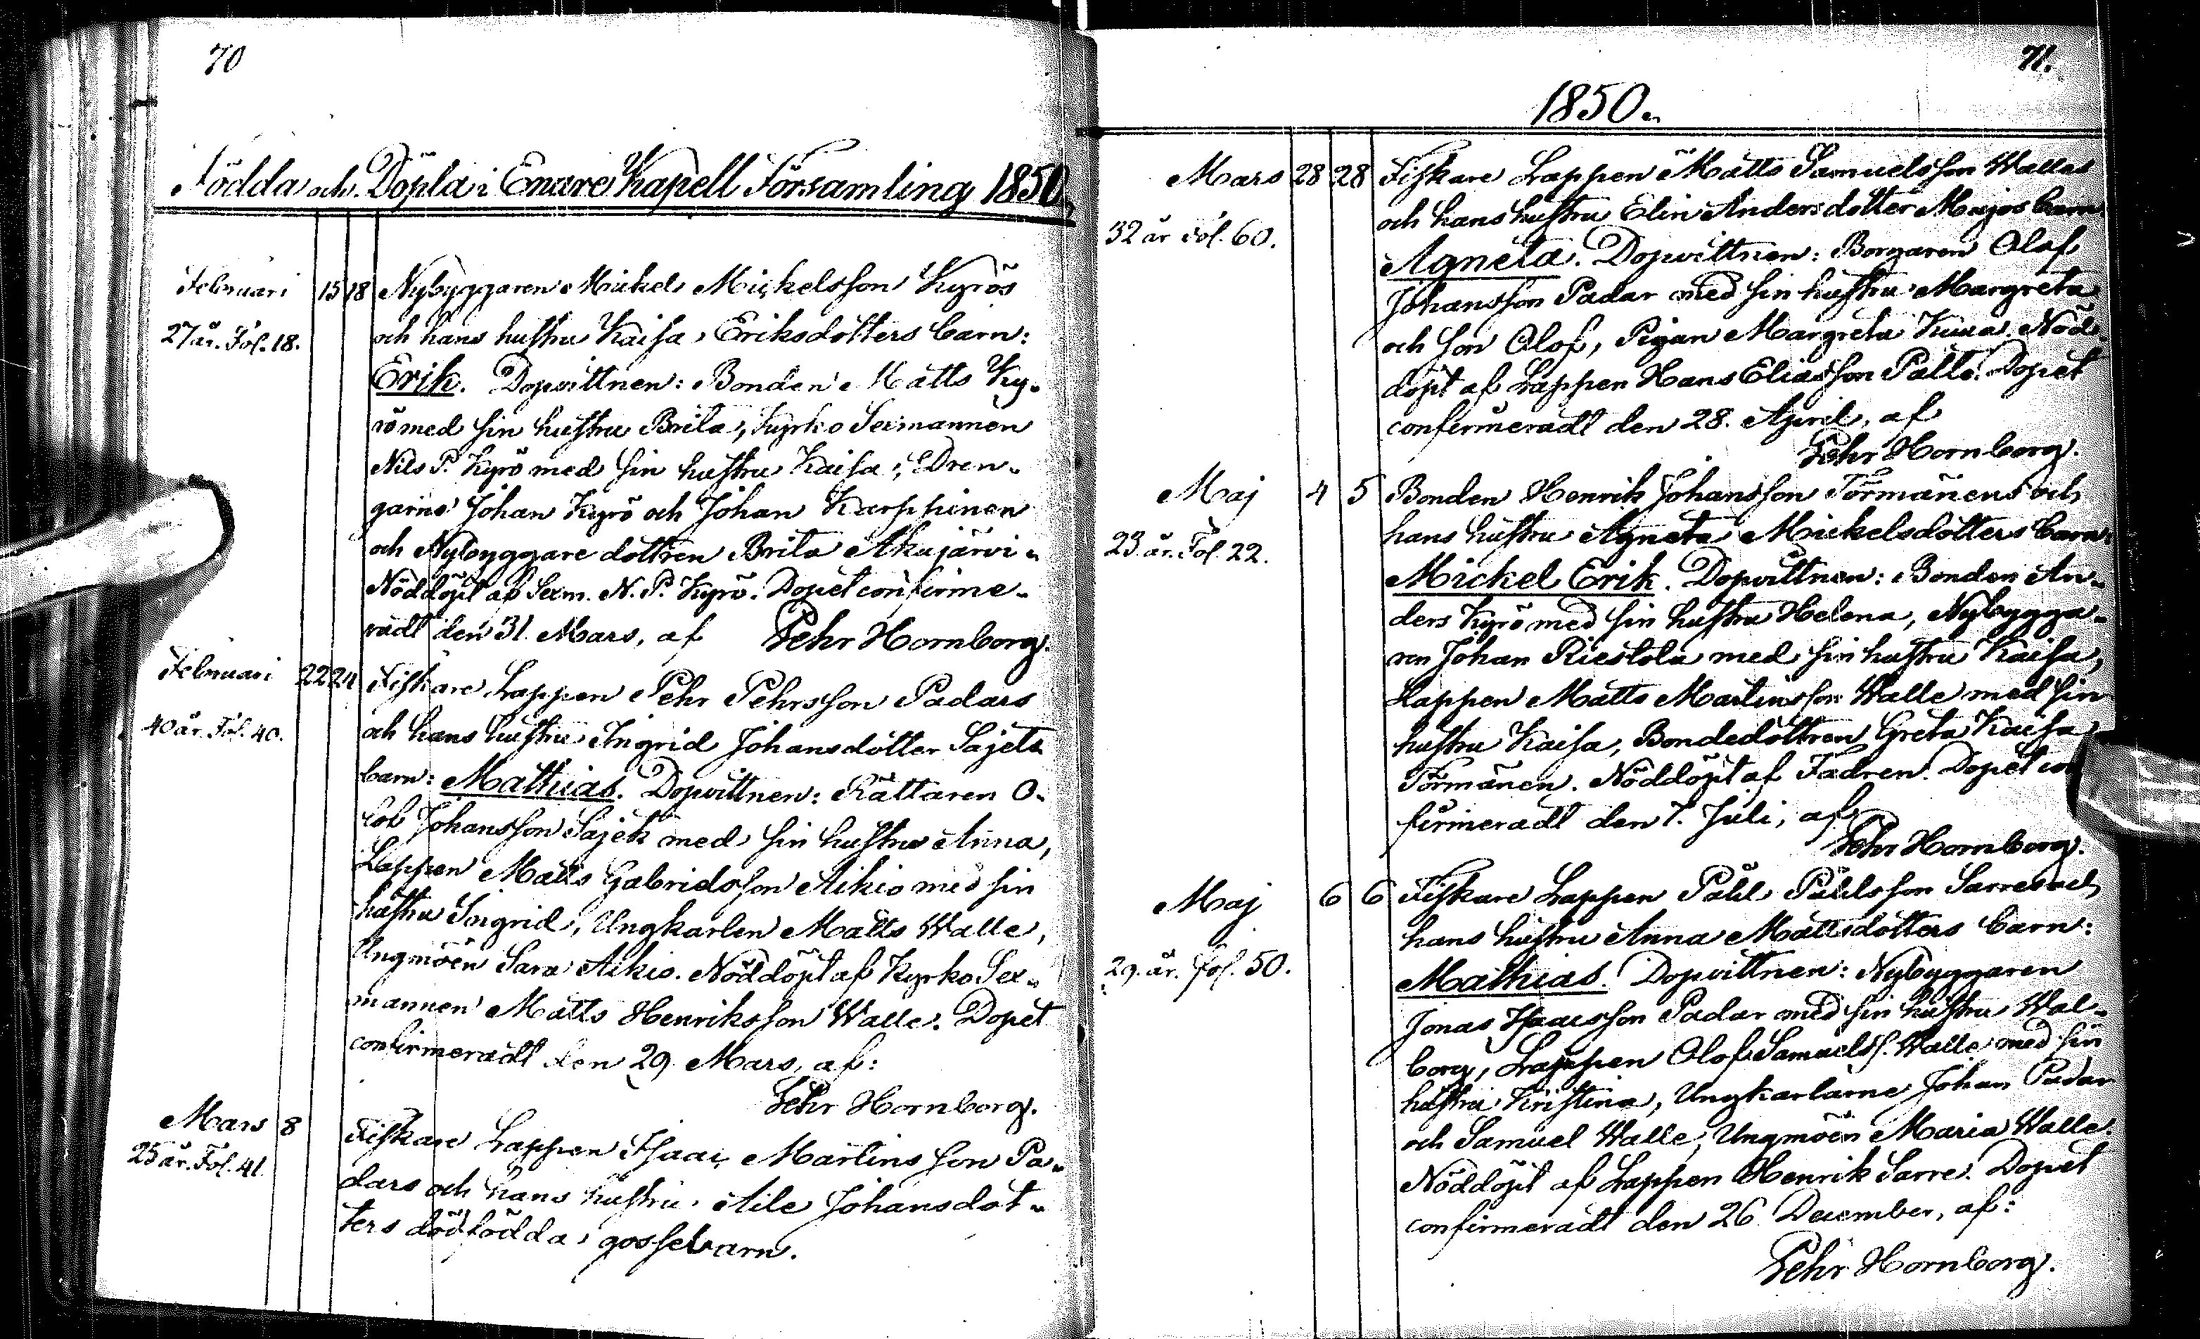 70
Födda och Döpta i Enare Kapell Församling 1850.
Februari 15 18 Nybyggaren Mickel Mickelsson Kyrös
27 år. Fol. 18. och hans hustru Kaisa Eriksdotters barn:
Erik. Dopvittnen: Bonden Matts Ky-
rö med sin hustru Brita, Kyrko Sexmannen
Nils P. Kyrö med sin hustru Kaisa, Dren-
garne Johan Kyrö och Johan Karppinen
och Nybyggare dottren Brita Akujärvi.
Nöddöpt af Sexm. N. P. Kyrö. Dopet confirme-
radt den 31. Mars, af Pehr Hornborg.
Februari 22 24 Fiskare Lappen Pehr Pehrsson Padars
40 år. Fol. 40. och hans hustru Ingrid Johansdotter Sajets
barn: Mathias. Dopvittnen: Rättaren O-
lof Johansson Sajet med sin hustru Anna,
Lappen Matts Gabrielsson Aikio med sin
hustru Ingrid, Ungkarlen Matts Walle,
Ungmöen Sara Aikio. Nöddöpt af Kyrko Sex-
mannen Matts Henriksson Walle. Dopet
confirmeradt den 29. Mars, af:
Pehr Hornborg.
Mars 8 Fiskare Lappen Isaac Martinsson Pa-
25 år. Fol. 41. dars och hans hustru Aile Johansdot-
ters dödfödda gossebarn.
71.
1850.
Mars 28 28 Fiskare Lappen Matts Samuelsson Walles
32 år Fol. 60. och hans hustru Elin Andersdotter Majos barn
Agneta. Dopvittnen: Borgaren Olof
Johansson Padar med sin hustru Margreta
och son Olof, Pigan Margreta Kuua. Nöd-
döpt af Lappen Hans Eliasson Palto. Dopet
confirmeradt den 28. April, af
Pehr Hornborg.
Maj 4 5 Bonden Henrik Johansson Törmänens och
23 år. Fol. 22. hans hustru Agneta Mickelsdotters barn:
Mickel Erik. Dopvittnen: Bonden An-
ders Kyrö med sin hustru Helena, Nybygga-
ren Johan Riestola med sin hustru Kaisa,
Lappen Matts Martinsson Walle med sin
hustru Kaisa, Bondedottren Greta Kaisa
Törmänen. Nöddöpt af Fadren. Dopet con
firmeradt den 7. Juli, af
Pehr Hornborg.
Maj 6 6 Fiskare Lappen Påhl Påhlsson Sarres och
29. år. Fol. 50. hans hustru Anna Mattsdotters barn:
Mathias. Dopvittnen: Nybyggaren
Jonas Isaacsson Padar med sin hustru Wal-
borg, Lappen Olof Samuelss. Walle med sin
hustru Kristina, Ungkarlarne Johan Padar
och Samuel Walle, Ungmöen Maria Walle.
Nöddöpt af Lappen Henrik Sarre. Dopet
confirmeradt den 26 December, af:
Pehr Hornborg.